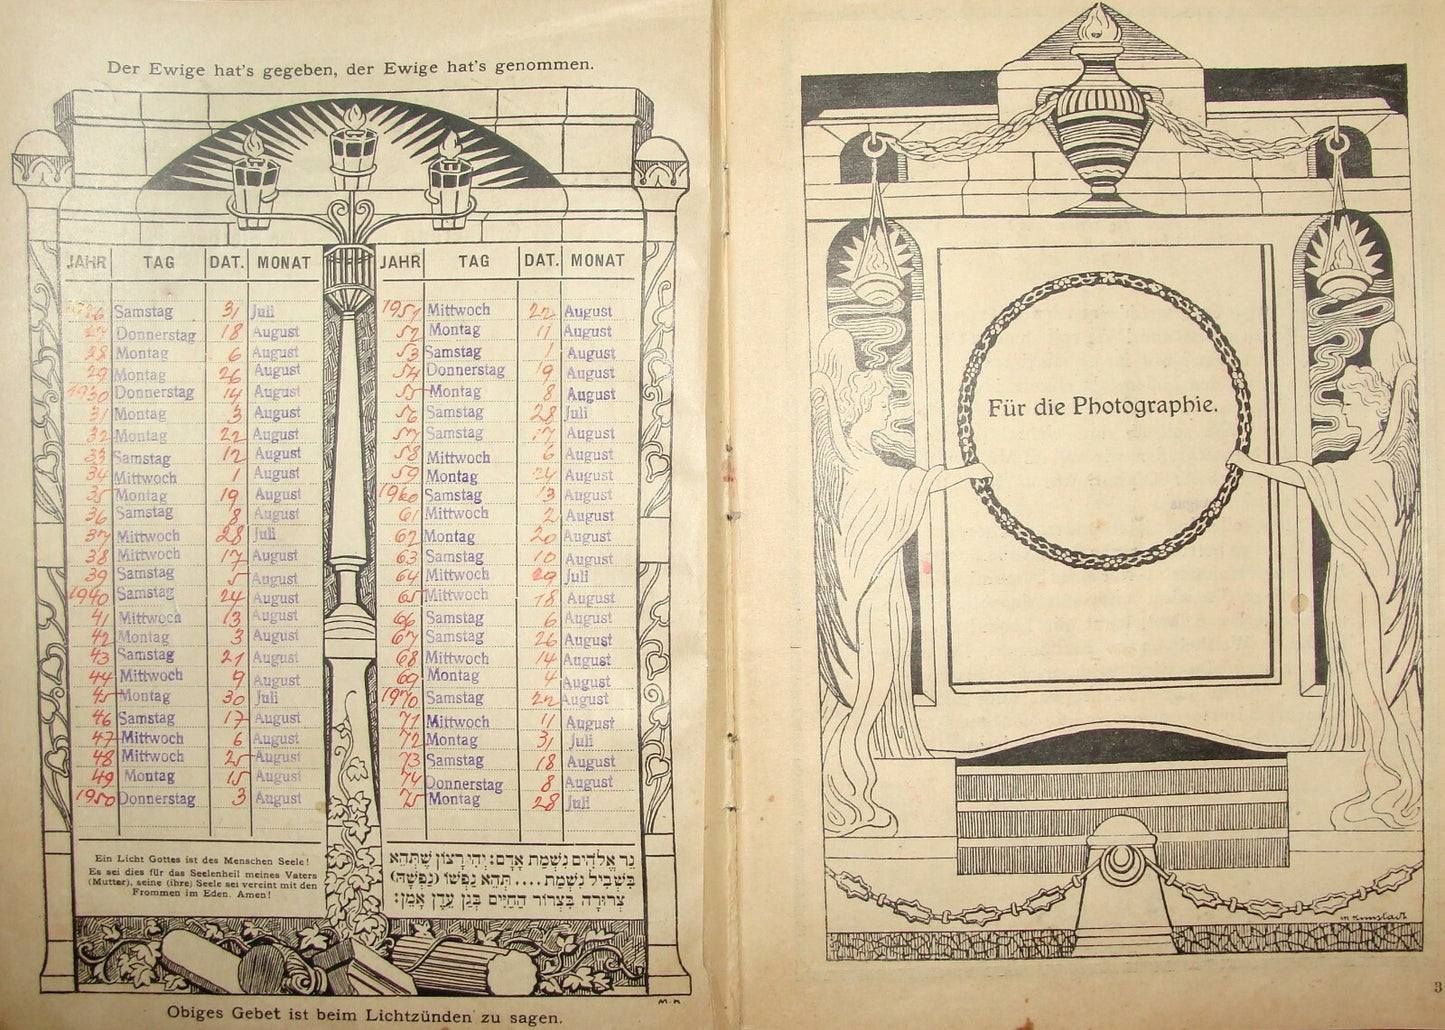 Der Ewige hat's gegeben, der Ewige hat's genommen.
JAHR TAG DAT. MONAT
1926 Samstag 31 Juli
27 Donnerstag 18 August
28 Montag 6 August
29 Montag 26 August
1930 Donnerstag 14 August
31 Montag 3 August
32 Montag 22 August
33 Samstag 12 August
34 Mittwoch 1 August
35 Montag 19 August
36 Samstag 8 August
37 Mittwoch 28 Juli
38 Mittwoch 17 August
39 Samstag 5 August
1940 Samstag 24 August
41 Mittwoch 13 August
42 Montag 3 August
43 Samstag 21 August
44 Mittwoch 9 August
45 Montag 30 Juli
46 Samstag 17 August
47 Mittwoch 6 August
48 Mittwoch 25 August
49 Montag 15 August
1950 Donnerstag 3 August
JAHR TAG DAT. MONAT
1951 Mittwoch 22 August
52 Montag 11 August
53 Samstag 1 August
54 Donnerstag 19 August
55 Montag 8 August
56 Samstag 28 Juli
57 Samstag 17 August
58 Mittwoch 6 August
59 Montag 24 August
1960 Samstag 13 August
61 Mittwoch 2 August
62 Montag 20 August
63 Samstag 10 August
64 Mittwoch 29 Juli
65 Mittwoch 18 August
66 Samstag 6 August
67 Samstag 26 August
68 Mittwoch 14 August
69 Montag 4 August
1970 Samstag 22 August
71 Mittwoch 11 August
72 Montag 31 Juli
73 Samstag 18 August
74 Donnerstag 8 August
75 Montag 28 Juli
Ein Licht Gottes ist des Menschen Seele!
Es sei dies für das Seelenheil meines Vaters
(Mutter), seine (ihre) Seele sei vereint mit den
Frommen im Eden. Amen!
נֵר אֱלֹהִים נִשְׁמַת אָדָם: יְהִי רָצוֹן שֶׁתְּהֵא
בִּשְׁבִיל נִשְׁמַת .... תְּהֵא נַפְשׁוֹ (נַפְשָׁהּ)
צְרוּרָה בִּצְרוֹר הַחַיִּים בְּגַן עֵדֶן אָמֵן:
M. K
Obiges Gebet ist beim Lichtzünden zu sagen.
Für die Photographie.
3